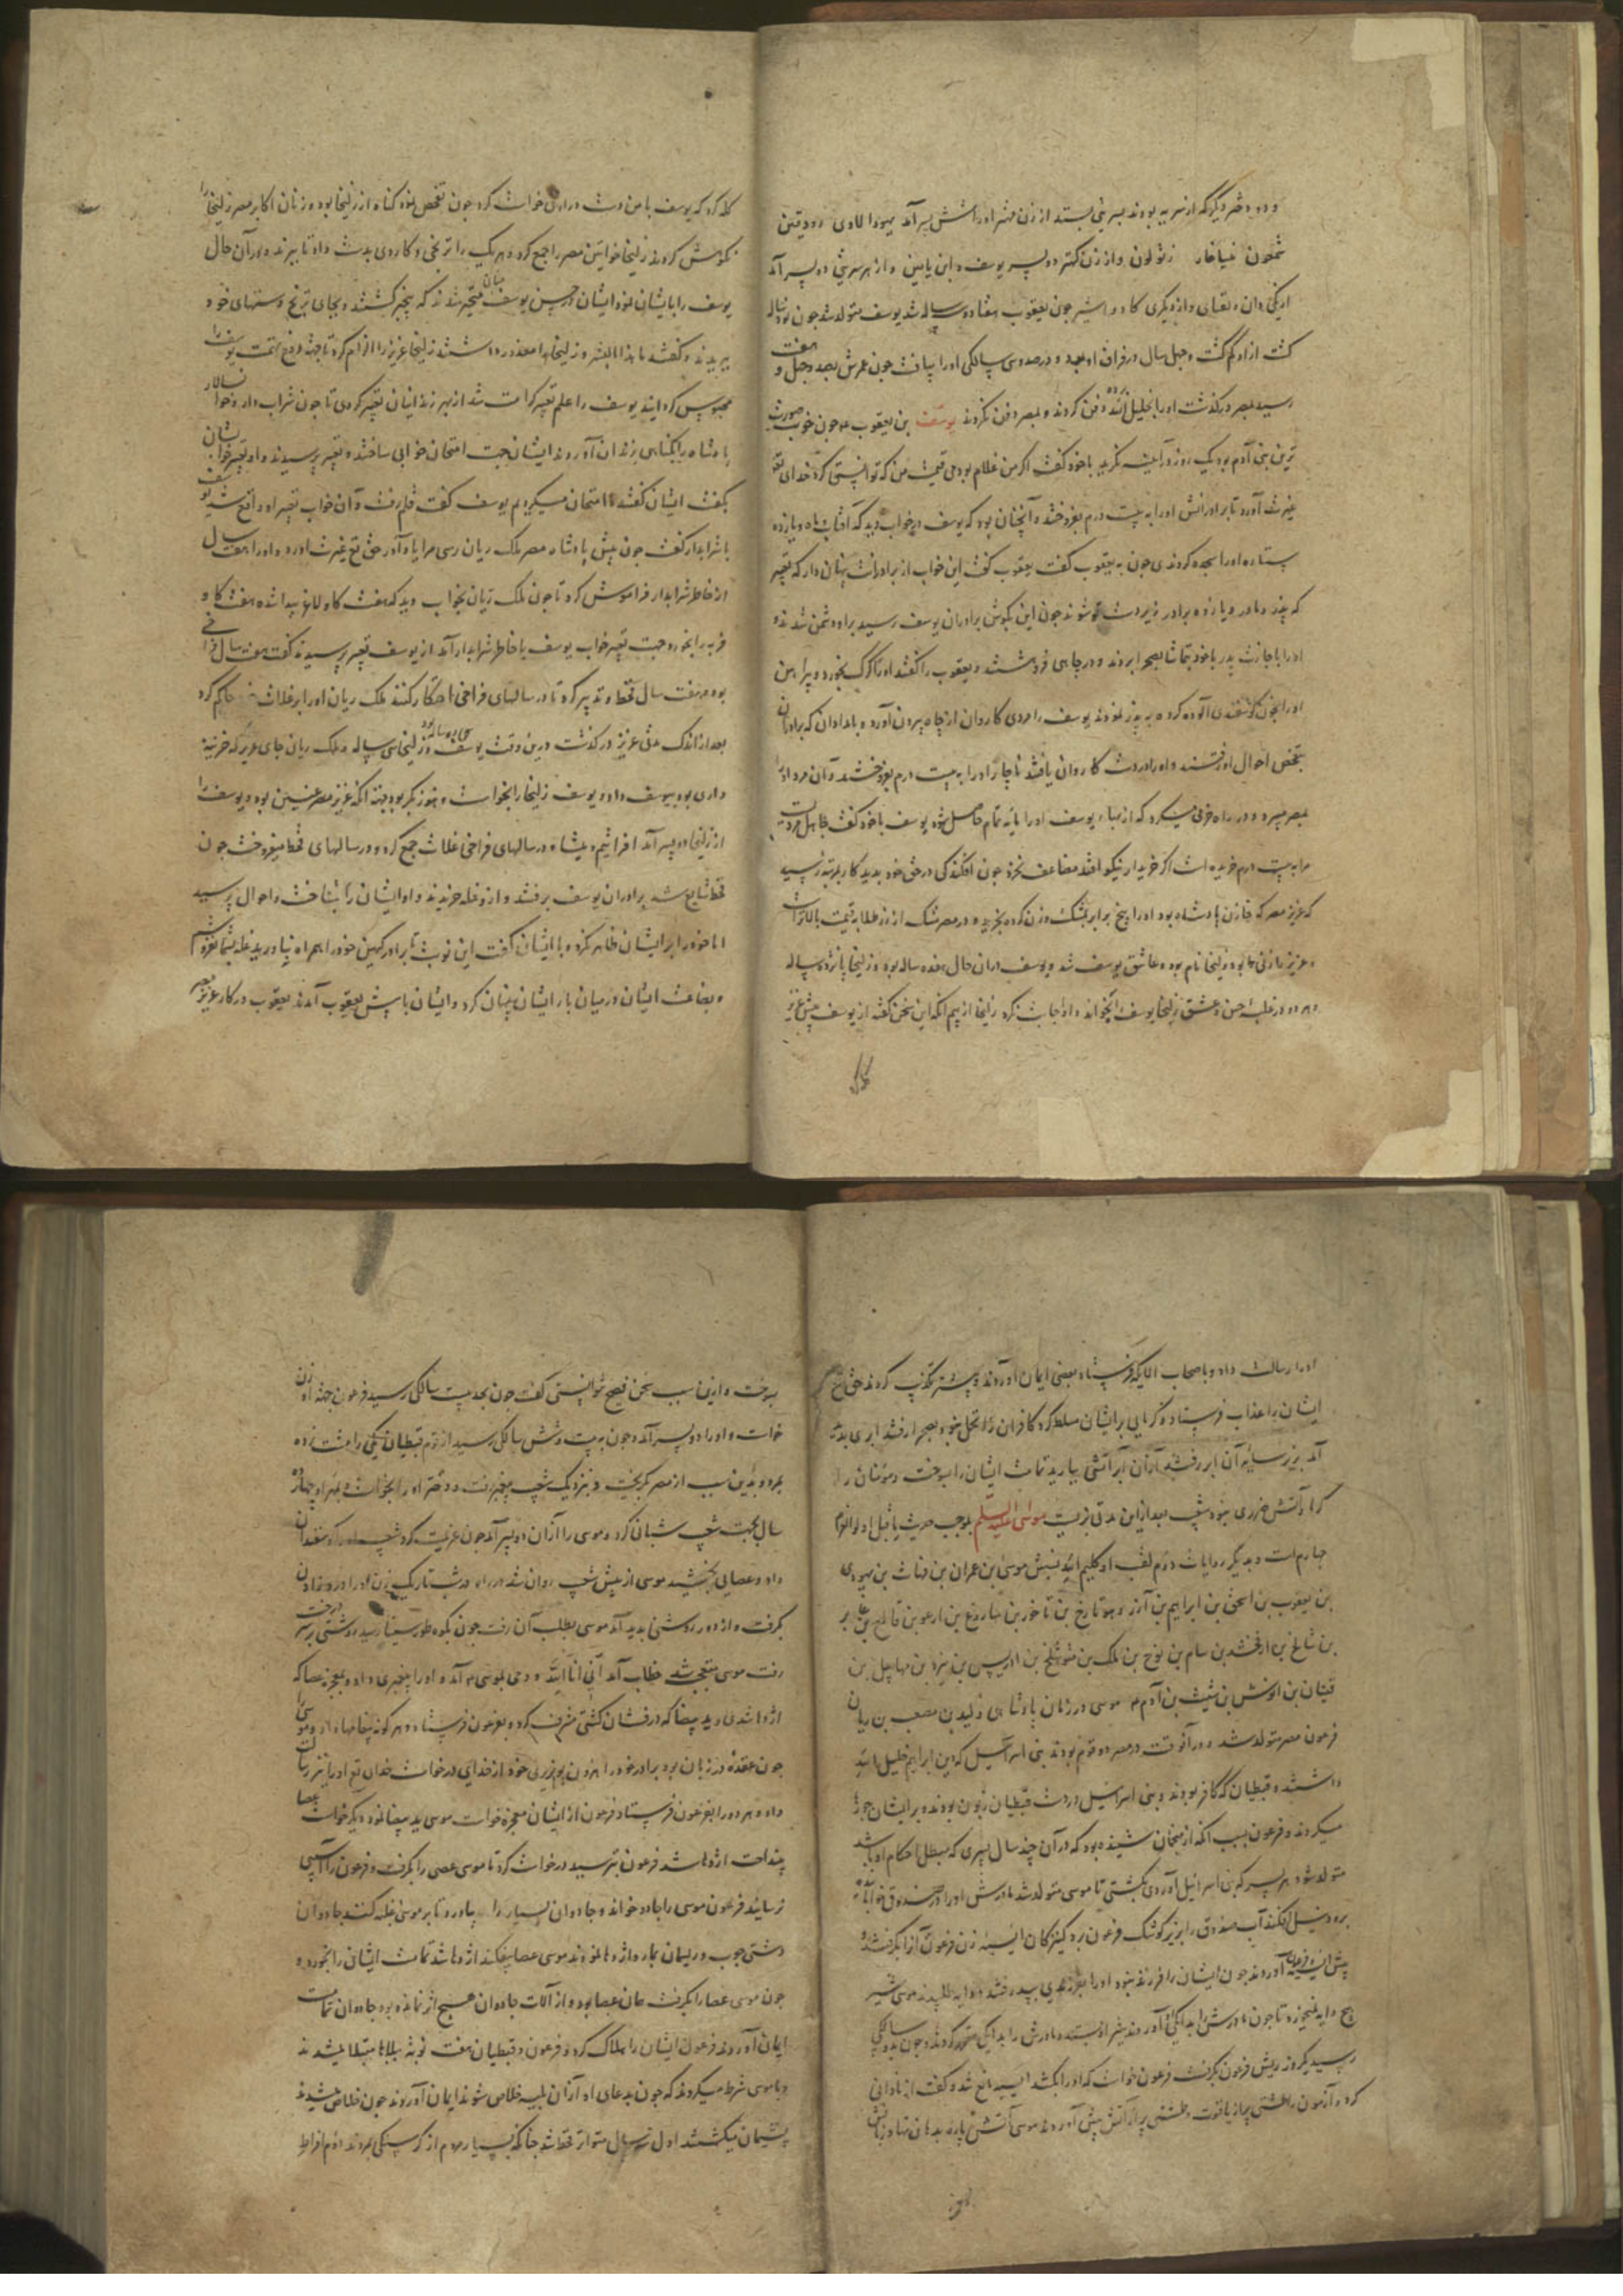 و دو دختر دیگر که از سریه بودند بسر نمی‌بستند از زن مهتر او را شش پسر آمد یهودا لاوی روبین
شمعون زبولون و از زن کهتر دو پسر یوسف و ابن یامین و از هر سریتی دو پسر آمد
از یکی دان و نفتالی و از دیگری کاد و اشیر چون یعقوب هفتاد و سه ساله شد یوسف متولد شد چون نود ساله
کشت از او کم کشت و چهل سال در فراق او بود و در صد و سی سالکی او را بیافت چون عمرش بصد و چهل و هفت
رسید بمصر درکذشت او را بخلیل آورده دفن کردند و بمصر دفن نکردند یوسف بن یعقوب ع چون خوب صورت
ترین بنی آدم بود یک روز در آینه نکرید با خود کفت اکر من غلام بودمی قیمت من که توانستی کرد خدای تع
غیرت آورد تا برادرانش او را به بیست درم بفروختند و آنچنان بود که یوسف در خواب دید که آفتاب و ماه و یازده
ستاره او را سجده کردندی چون به یعقوب کفت یعقوب کفت این خواب از برادرانت پنهان دار که تعبیر
که پدر و مادر و یازده برادر زیردست تو شوند چون این بکوش برادران یوسف رسید برادر دشمن شدند و
او را باجازت پدر با خود بتماشا بصحرا بردند و در چاهی فروهشتند و یعقوب را کفتند او را کرک بخورد و پیراهن
او را بخون کوسفندی آلوده کرده به پدر نمودند یوسف را مردی کاروان از چاه بیرون آورد و بامدادان که برادران
بتفحص احوال او رفتند و او را در دست کاروان یافتند ناچار او را به بیست درم بفروختند و آن مرد او را
بمصر میبرد و در راه خرجی میکرد که از بهاء یوسف او را مایه تمام حاصل شود یوسف با خود کفت جاهل مردیست
مرا به بیست درم خریده است اکر خریدار نیکو افتد مضاعف نخرد چون افکندکی در حق خود بدید کار بمرتبه رسید
که عزیز مصر که خازن پادشاه بود او را بپنج برابر بمشک وزن کرده بخرید و در مصر مشک از زر طلا به قیمت بالاتر است
و عزیز را زنی بود زلیخا نام بود و عاشق یوسف شد و یوسف در آن حال هفده ساله بود و زلیخا پانزده ساله
و هر دو در غلبه حسن و عشق زلیخا یوسف را بخواند و او اجابت نکرد زلیخا از بیم آنکه این سخن نکفته از یوسف پیش عزیز
کله
کله کرد که یوسف با من دست درازی خواست کرد چون تفحص نمود کناه از زلیخا بود و زنان اکابر مصر زلیخا را
نکوهش کردند زلیخا خواتین مصر را جمع کرد و هر یک را ترنجی و کاردی بدست داد تا ببرند و در آن حال
یوسف را بایشان نمود ایشان در حسن یوسف چنان متحیر شدند که بیخبر کشتند و بجای ترنج دستهای خود
ببریدند و کفتند ما هذا البشر و زلیخا را معذور داشتند زلیخا عزیز را الزام کرد تا جهت دفع تهمت یوسف را
محبوس کردانید یوسف را علم تعبیر کرامت شد از بهر زندانیان تعبیر کردی تا چون شراب دار و خوانسالار
پادشاه را بکناهی بزندان آوردند ایشان جهت امتحان خوابی ساختند و تعبیر پرسیدند و او تعبیر خواب ایشان
بکفت ایشان کفتند ما امتحان میکردیم یوسف کفت قلم رفت و آن خواب تعبیر او واقع شد یوسف
با شرابدار کفت چون پیش پادشاه مصر ملک ریان رسی مرا یاد آور حق تع غیرت آورد و او را هفت سال
از خاطر شرابدار فراموش کرد تا چون ملک ریان بخواب دید که هفت کاو لاغر پیدا شده هفت کاو
فربه را بخورد جهت تعبیر خواب یوسف با خاطر شرابدار آمد از یوسف تعبیر پرسیدند کفت هفت سال فراخی
بود و هفت سال قحط و تدبیر کرد تا در سالهای فراخی احتکار کنند ملک ریان او را بر غلات حاکم کرد
بعد از اندک مدتی عزیز درکذشت درین وقت یوسف سی و سه ساله بود و زلیخا سی ساله ملک ریان جای عزیز که خزینه
داری بود بیوسف داد و یوسف زلیخا را بخواست و هنوز بکر بود جهت آنکه عزیز مصر عنین بود و یوسف را
از زلیخا دو پسر آمد افرائیم و میشا و در سالهای فراخی غلات جمع کرد و در سالهای قحط میفروخت چون
قحط شایع شد برادران یوسف برفتند و از او غله خریدند و او ایشان را بشناخت و احوال پرسید
اما خود را بر ایشان ظاهر نکرد و با ایشان کفت این نوبت تا برادر کهین خود را همراه نیاورید غله بشما نفروشم
و بضاعت ایشان در میان بار ایشان پنهان کرد و ایشان با پیش یعقوب آمدند یعقوب در کار عزیز مصر
او را رسالت داد و باصحاب الایکه فرستاد بعضی ایمان آوردند و بیشتر تکذیب کردند حق تع
ایشان را عذاب فرستاد و کرمایی بر ایشان مسلط کرد کافران را تحمل نبود بصحرا رفتند ابری بدید
آمد بزیر سایه آن ابر رفتند از آن ابر آتشی ببارید تمامت ایشان را بسوخت و مؤمنان را از
کرما و آتش ضرری نبود شعیب بعد از این مدتی بزیست موسی علیه السلم بموجب حدیث ما قبل اولوالعزم
چهارم است و بدیکر روایات دوم لقب او کلیم الله نسبش موسی بن عمران بن قاهث بن لاوی
بن یعقوب بن اسحق بن ابراهیم بن آزر و هو تارخ بن ناخور بن ساروغ بن ارغو بن فالغ بن عابر
بن شالخ بن ارفخشد بن سام بن نوح بن لمک بن متوشلخ بن ادریس بن یزد بن مهلاییل بن
قینان بن انوش بن شیث بن آدم ع موسی در زمان پادشاهی ولید بن مصعب بن ریان
فرعون مصر متولد شد و در آن وقت در مصر دو قوم بودند بنی اسرائیل که دین ابراهیم خلیل الله
داشتند و قبطیان که کافر بودند و بنی اسرائیل در دست قبطیان زبون بودند و بر ایشان جورها
میکردند و فرعون بسبب آنکه از منجمان شنیده بود که در آن چند سال پسری که مبطل احکام او باشد
متولد شود هر پسر که بنی اسرائیل آوردی بکشتی تا موسی متولد شد مادرش او را در صندوق خوابانیده
برود نیل افکند آب صندوق را بزیر کوشک فرعون برد کنیزکان آسیه زن فرعون آن را بکرفتند و
پیش آسیه و فرعون آوردند چون ایشان را فرزند نبود او را بفرزندی بپذیرفتند و دایه طلبیدند موسی شیر
هیچ دایه نمیخورد تا چون مادرش را بدایکی آوردند شیر او بستد مادرش را بدایکی مقرر کردند و چون بدو سالکی
رسید یکروز ریش فرعون بکرفت فرعون خواست که او را بکشد آسیه مانع شد و کفت از نادانی
کرد و آزمون را طشتی پر از یاقوت و طشتی پر از آتش پیش آوردند موسی آتش پاره بدهان نهاد زبانش
بسوخت و از این سبب سخن فصیح نتوانستی کفت چون بحد بیست سالکی رسید فرعون جهت او زن
خواست و او را دو پسر آمد و چون به بیست و شش سالکی رسید از قوم قبطیان یکی را مشت زده
بمرد و بدین سبب از مصر بکریخت و بنزدیک شعیب پیغمبر رفت و دختر او را بخواست و بمهر او چهارده
سال بجهت شعیب شبانی کرد و موسی را از آن دو پسر آمد چون عزیمت کرد شعیب او را کوسفندان
داد و عصایی بخشید موسی از پیش شعیب روان شد در راه در شب تاریک زن او را درد زادن
بکرفت و از دور روشنی بدید آمد موسی بطلب آن رفت چون بکوه طور سینا رسید روشنی بر سر درخت
رفت موسی متعجب شد خطاب آمد انی انا الله و وحی بموسی ع آمد و او را پیغمبری داد و بمعجزه عصا که
اژدها شدی و ید بیضا که درفشان کشتی مشرف کرد و بفرعون فرستاد و هر کونه پیغامها داد و موسی را
چون عقده در زبان بود برادر خود را هرون بوزیری خود از خدای درخواست خدای تع او را نیز رسالت
داد و هر دو را بفرعون فرستاد فرعون از ایشان معجزه خواست موسی ید بیضا نمود دیکر خواست عصا
بینداخت اژدها شد فرعون بترسید درخواست کرد تا موسی عصا را بکرفت و فرعون را آسیبی
نرسانید فرعون موسی را جادو خواند و جادوان بسیار را بیاورد تا بر موسی غلبه کنند جادوان
دشتی چوب و ریسمان بمار و اژدها نمودند موسی عصا بیفکند اژدها شد تمامت ایشان را بخورد و
چون موسی عصا را بکرفت همان عصا بود و از آلات جادوان هیچ اثر نمانده بود جادوان تمامت
ایمان آوردند فرعون ایشان را هلاک کرد و فرعون و قبطیان هفت نوبت ببلاها مبتلا میشدند
و با موسی شرط میکردند که چون بدعای او از آن بلیه خلاص شوند ایمان آورند چون خلاص میشدند
پشیمان میکشتند اول سه سال متواتر قحط شد چنانکه بسیار مردم از کرسنکی بمردند دوم افراط